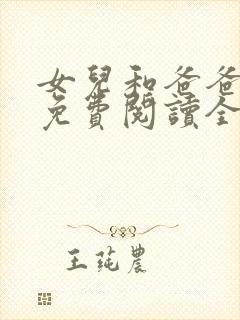 女兒和爸爸
免費閱讀全
王莼農